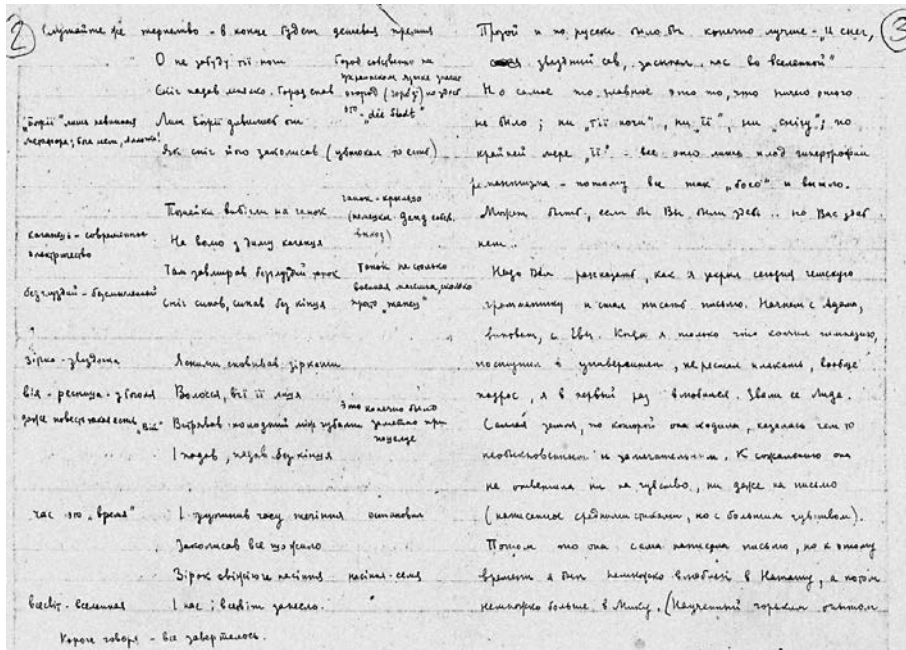 2
Слушайте же терпеливо - в конце будет дешевая премия
О не забуду тії ночи
Сніг падав мляско. Город спав
Лиш Божії дивились очи
Як сніг його заколисав (убаюкал то есть)
Город собственно на
украинском языке значит
огород (город) но здесь
это - „die Stadt“
„Божії“ лишь невинная
метафора;
Помейки вибігли на ганок
Не воло з диму каганця
Там завмирав безглуздий танок
Сніг сипав, сипав без кінця
ганок - крыльцо
(немецк. Gang собств.
выход)
Танок не столько
весёлая массика, сколько
просто „танец“
каганець - современное
электричество
безглуздий - бессмысленный
?
Ясними сповивав зірками
Волосся, вії її лиця
Витрявав холодний між губами
І падав, падав без кінця
Это конечно было
заметно при
поцелуе
зірка - звёздочка
вія - ресница - у Гоголя
даже повесть такая есть „Вий“
І зупинив часу течіння остановил
Заколисав все що жило
Зірок свіжіюче насіння насіння - семя
І нас і всесвіт занесло.
час это „время“
всесвіт - вселенная
Короче говоря - все завертелось.
3
Прозой и по русски было бы конечно лучше - „И снег,
звездный сев, засыпал нас во вселенной“
Но самое то главное это то, что ничего этого
не было; ни „тії ночи“, ни „її“, ни „снігу“; по
крайней мере „її“ - все это лишь плод гипертрофии
романтизма - потому все так „босо“ и вышло.
Может быть, если бы Вы были здесь .. но Вас здесь
нет ..
Надо Вам рассказать, как я закрыл сегодня чешскую
грамматику и стал писать письмо. Начнем с Адама,
виноват, с Евы. Когда я только что кончил гимназию,
поступил в университет, не перестал плакать, вообще
подрос, я в первый раз влюбился. Звали ее Лида.
Самая земля, по которой она ходила, казалась чем то
необыкновенным и замечательным. К сожалению она
не ответила ни на чувство, ни даже на письмо
(написанное средними стихами, но с большим чувством).
Потом то она сама написала письмо, но к этому
времени я был немножко влюблен в Наташу, а потом
немножко больше в Мику. (Наученный горьким опытом